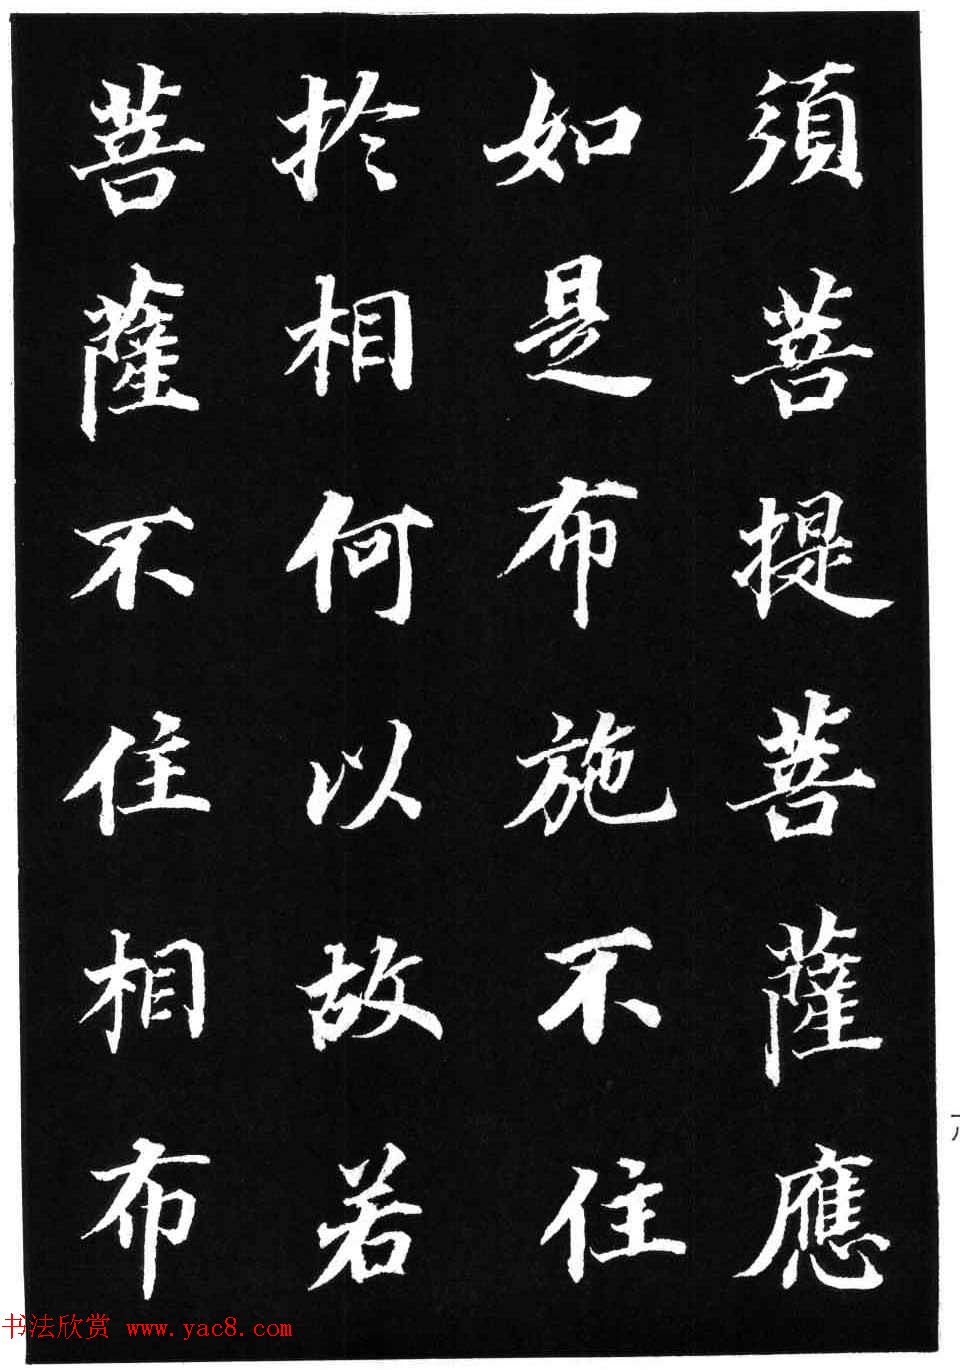 須菩提菩薩應
如是布施不住
於相何以故若
菩薩不住相布
书法欣赏 www.yac8.com